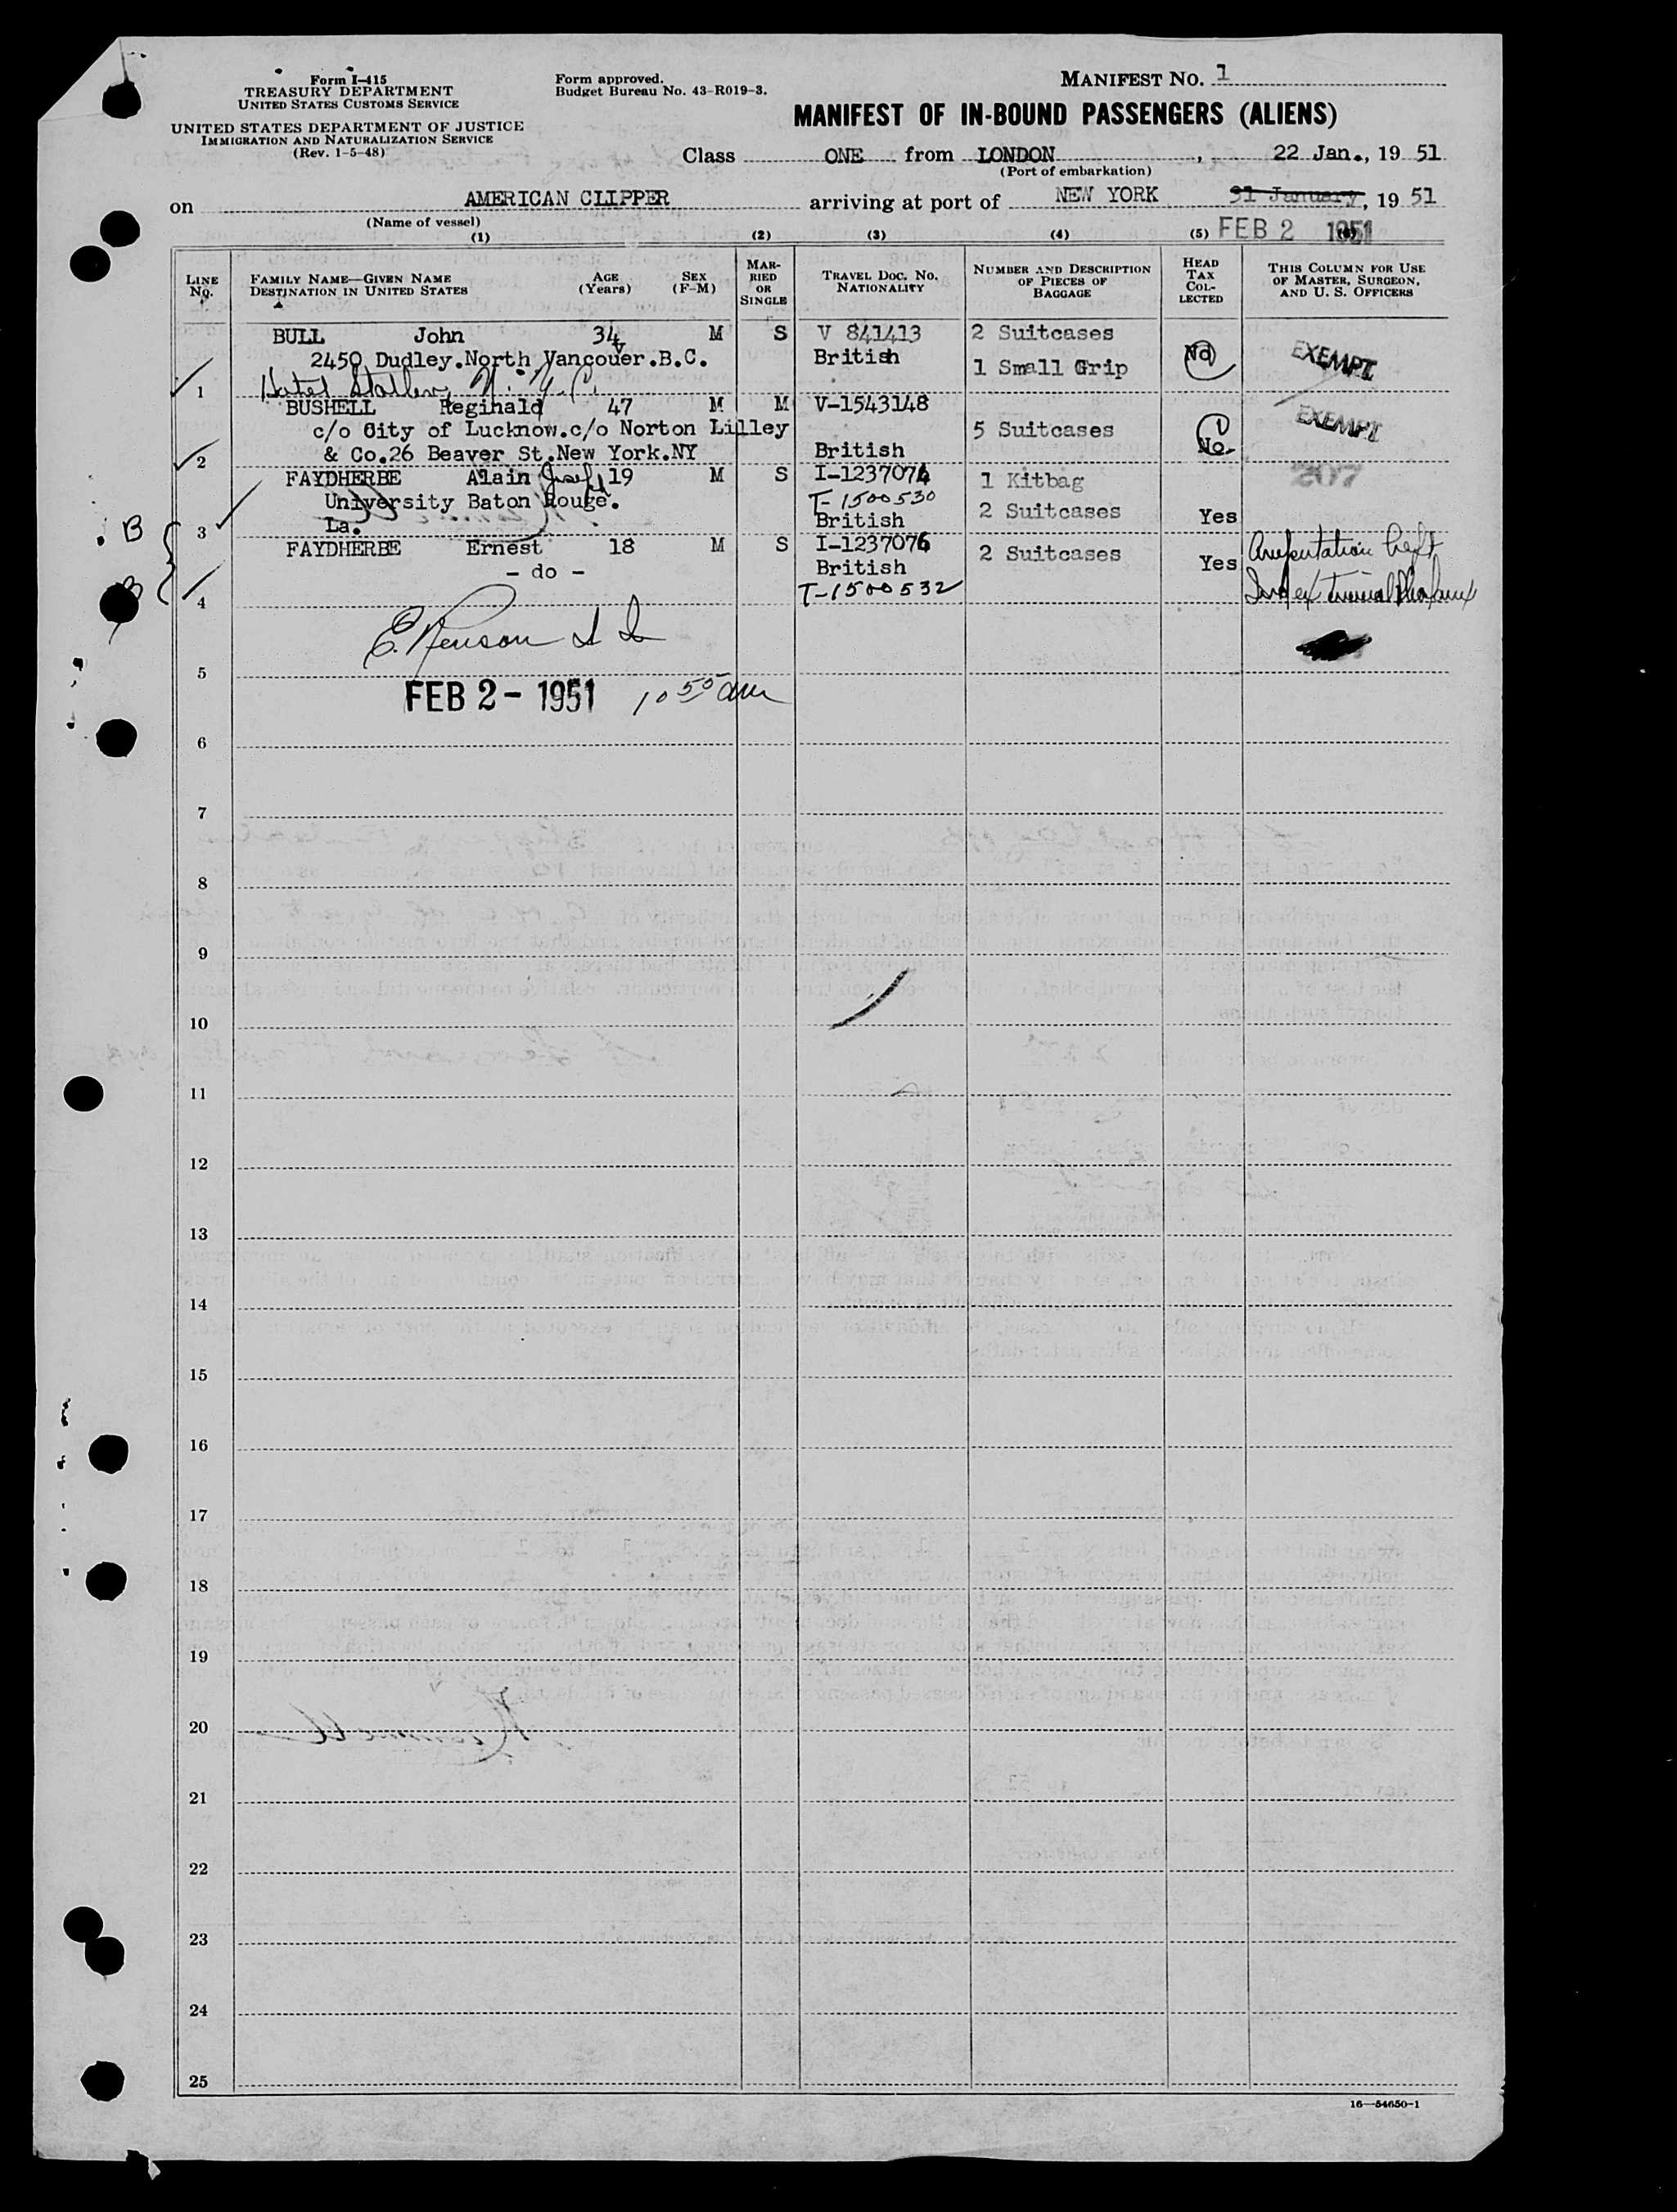 Form I-415
TREASURY DEPARTMENT
UNITED STATES CUSTOMS SERVICE
UNITED STATES DEPARTMENT OF JUSTICE
IMMIGRATION AND NATURALIZATION SERVICE
(Rev. 1-5-48)
Form approved.
Budget Bureau No. 43-R019-3.
MANIFEST NO. 1
MANIFEST OF IN-BOUND PASSENGERS (ALIENS)
Class ONE from LONDON, 22 Jan., 19 51
(Port of embarkation)
on AMERICAN CLIPPER arriving at port of NEW YORK 31 January, 19 51
(Name of vessel)
FEB 2 1951
(1) (2) (3) (4) (5)
LINE NO. FAMILY NAME—GIVEN NAME DESTINATION IN UNITED STATES AGE (Years) SEX (F-M) MARRIED OR SINGLE TRAVEL DOC. NO. NATIONALITY NUMBER AND DESCRIPTION OF PIECES OF BAGGAGE HEAD TAX COLLECTED THIS COLUMN FOR USE OF MASTER, SURGEON, AND U. S. OFFICERS
BULL John 34 M S V 841413 2 Suitcases
2450 Dudley.North Vancouer.B.C. British 1 Small Grip No EXEMPT
v
1 Hotel N.Y.C.
BUSHELL Reginald 47 M M V-1543148
c/o City of Lucknow.c/o Norton Lilley 5 Suitcases EXEMPT
2 & Co.26 Beaver St.New York.NY British No.
FAYDHERBE Alain 19 M S I-1237074 1 Kitbag 207
University Baton Rouge. T-1500530 2 Suitcases
3 La. British Yes
B
FAYDHERBE Ernest 18 M S I-1237076 2 Suitcases Yes
- do - British
B
4 T-1500532 Index
E.
5
FEB 2 - 1951 10 55 am
6
7
8
9
10
11
12
13
14
15
16
17
18
19
20
21
22
23
24
25
16—54650-1